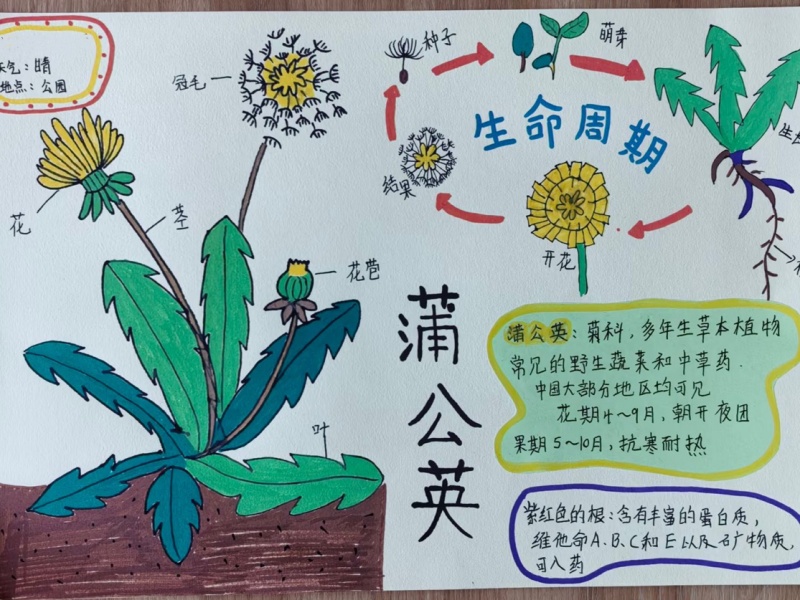 天气：晴
地点：公园
冠毛
花
茎
花苞
叶
种子
萌芽
生命周期
结果
开花
蒲公英
蒲公英：菊科，多年生草本植物
常见的野生蔬菜和中草药.
中国大部分地区均可见
花期4～9月，朝开夜团
果期5～10月，抗寒耐热
紫红色的根：含有丰富的蛋白质，
维他命A、B、C和E以及矿物质，
可入药